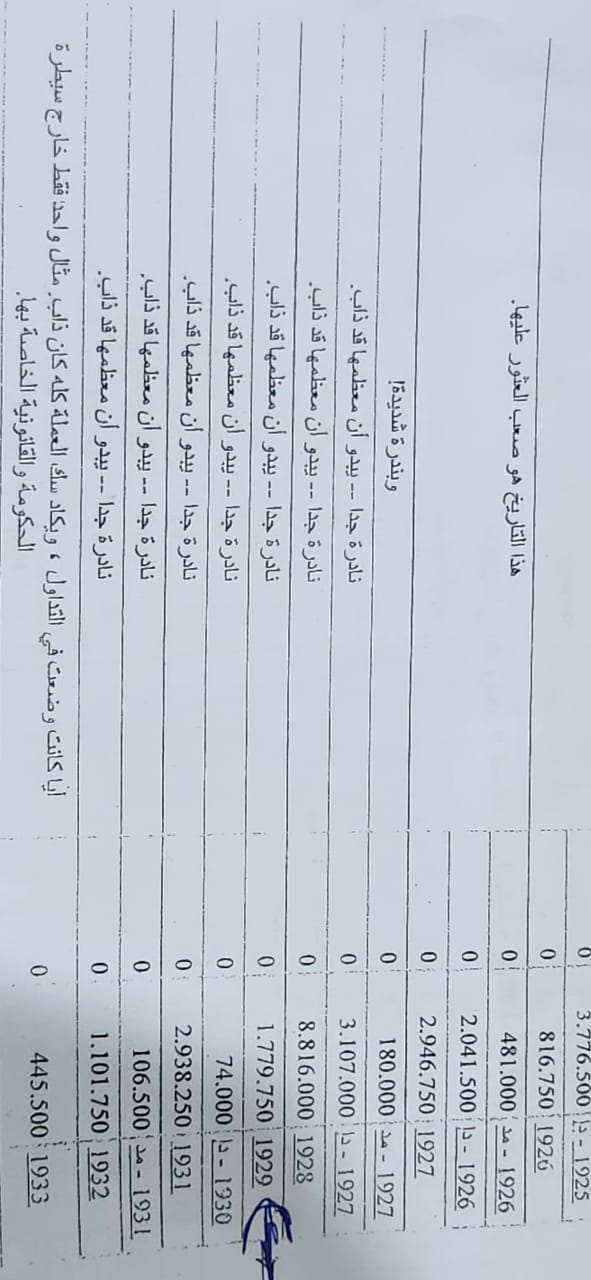 1925 - دا 3.776.500 0
1926 816.750 0
1926 - مد 481.000 0 هذا التاريخ هو صعب العثور عليها.
1926 - دا 2.041.500 0
1927 2.946.750 0
1927 - مد 180.000 0 وبندرة شديدة!
1927 - دا 3.107.000 0 نادرة جدا -- يبدو أن معظمها قد ذاب.
1928 8.816.000 0 نادرة جدا -- يبدو أن معظمها قد ذاب.
1929 1.779.750 0 نادرة جدا -- يبدو أن معظمها قد ذاب.
1930 - دا 74.000 0 نادرة جدا -- يبدو أن معظمها قد ذاب.
1931 2.938.250 0 نادرة جدا -- يبدو أن معظمها قد ذاب.
1931 - مد 106.500 0 نادرة جدا -- يبدو أن معظمها قد ذاب.
1932 1.101.750 0 نادرة جدا -- يبدو أن معظمها قد ذاب.
1933 445.500 0 أيا كانت وضعت في التداول ، ويكاد سك العملة كله كان ذاب. مثال واحد فقط خارج سيطرة
الحكومة والقانونية الخاصة بها.